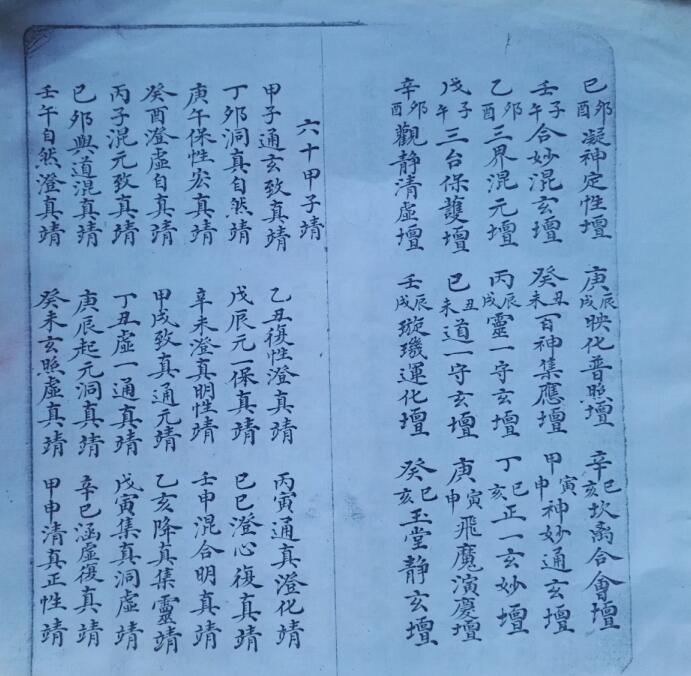 己卯酉凝神定性壇 庚辰戌映化普照壇 辛巳亥坎离合會壇
壬子午合妙混玄壇 癸丑未百神集應壇 甲寅申神妙通玄壇
乙卯酉三界混元壇 丙辰戌靈一守玄壇 丁巳亥正一玄妙壇
戊子午三台保護壇 己丑未道一守玄壇 庚寅申飛魔演慶壇
辛卯酉觀靜清虛壇 壬辰戌璇璣運化壇 癸巳亥玉堂靜玄壇
六十甲子靖
甲子通玄致真靖 乙丑復性澄真靖 丙寅通真澄化靖
丁卯洞真自然靖 戊辰元一保真靖 己巳澄心復真靖
庚午保性宏真靖 辛未澄真明性靖 壬申混合明真靖
癸酉澄虛自真靖 甲戌致真通元靖 乙亥降真集靈靖
丙子混元致真靖 丁丑虛一通真靖 戊寅集真洞虛靖
己卯與道混真靖 庚辰起元洞真靖 辛巳涵虛復真靖
壬午自然澄真靖 癸未玄照虛真靖 甲申清真正性靖